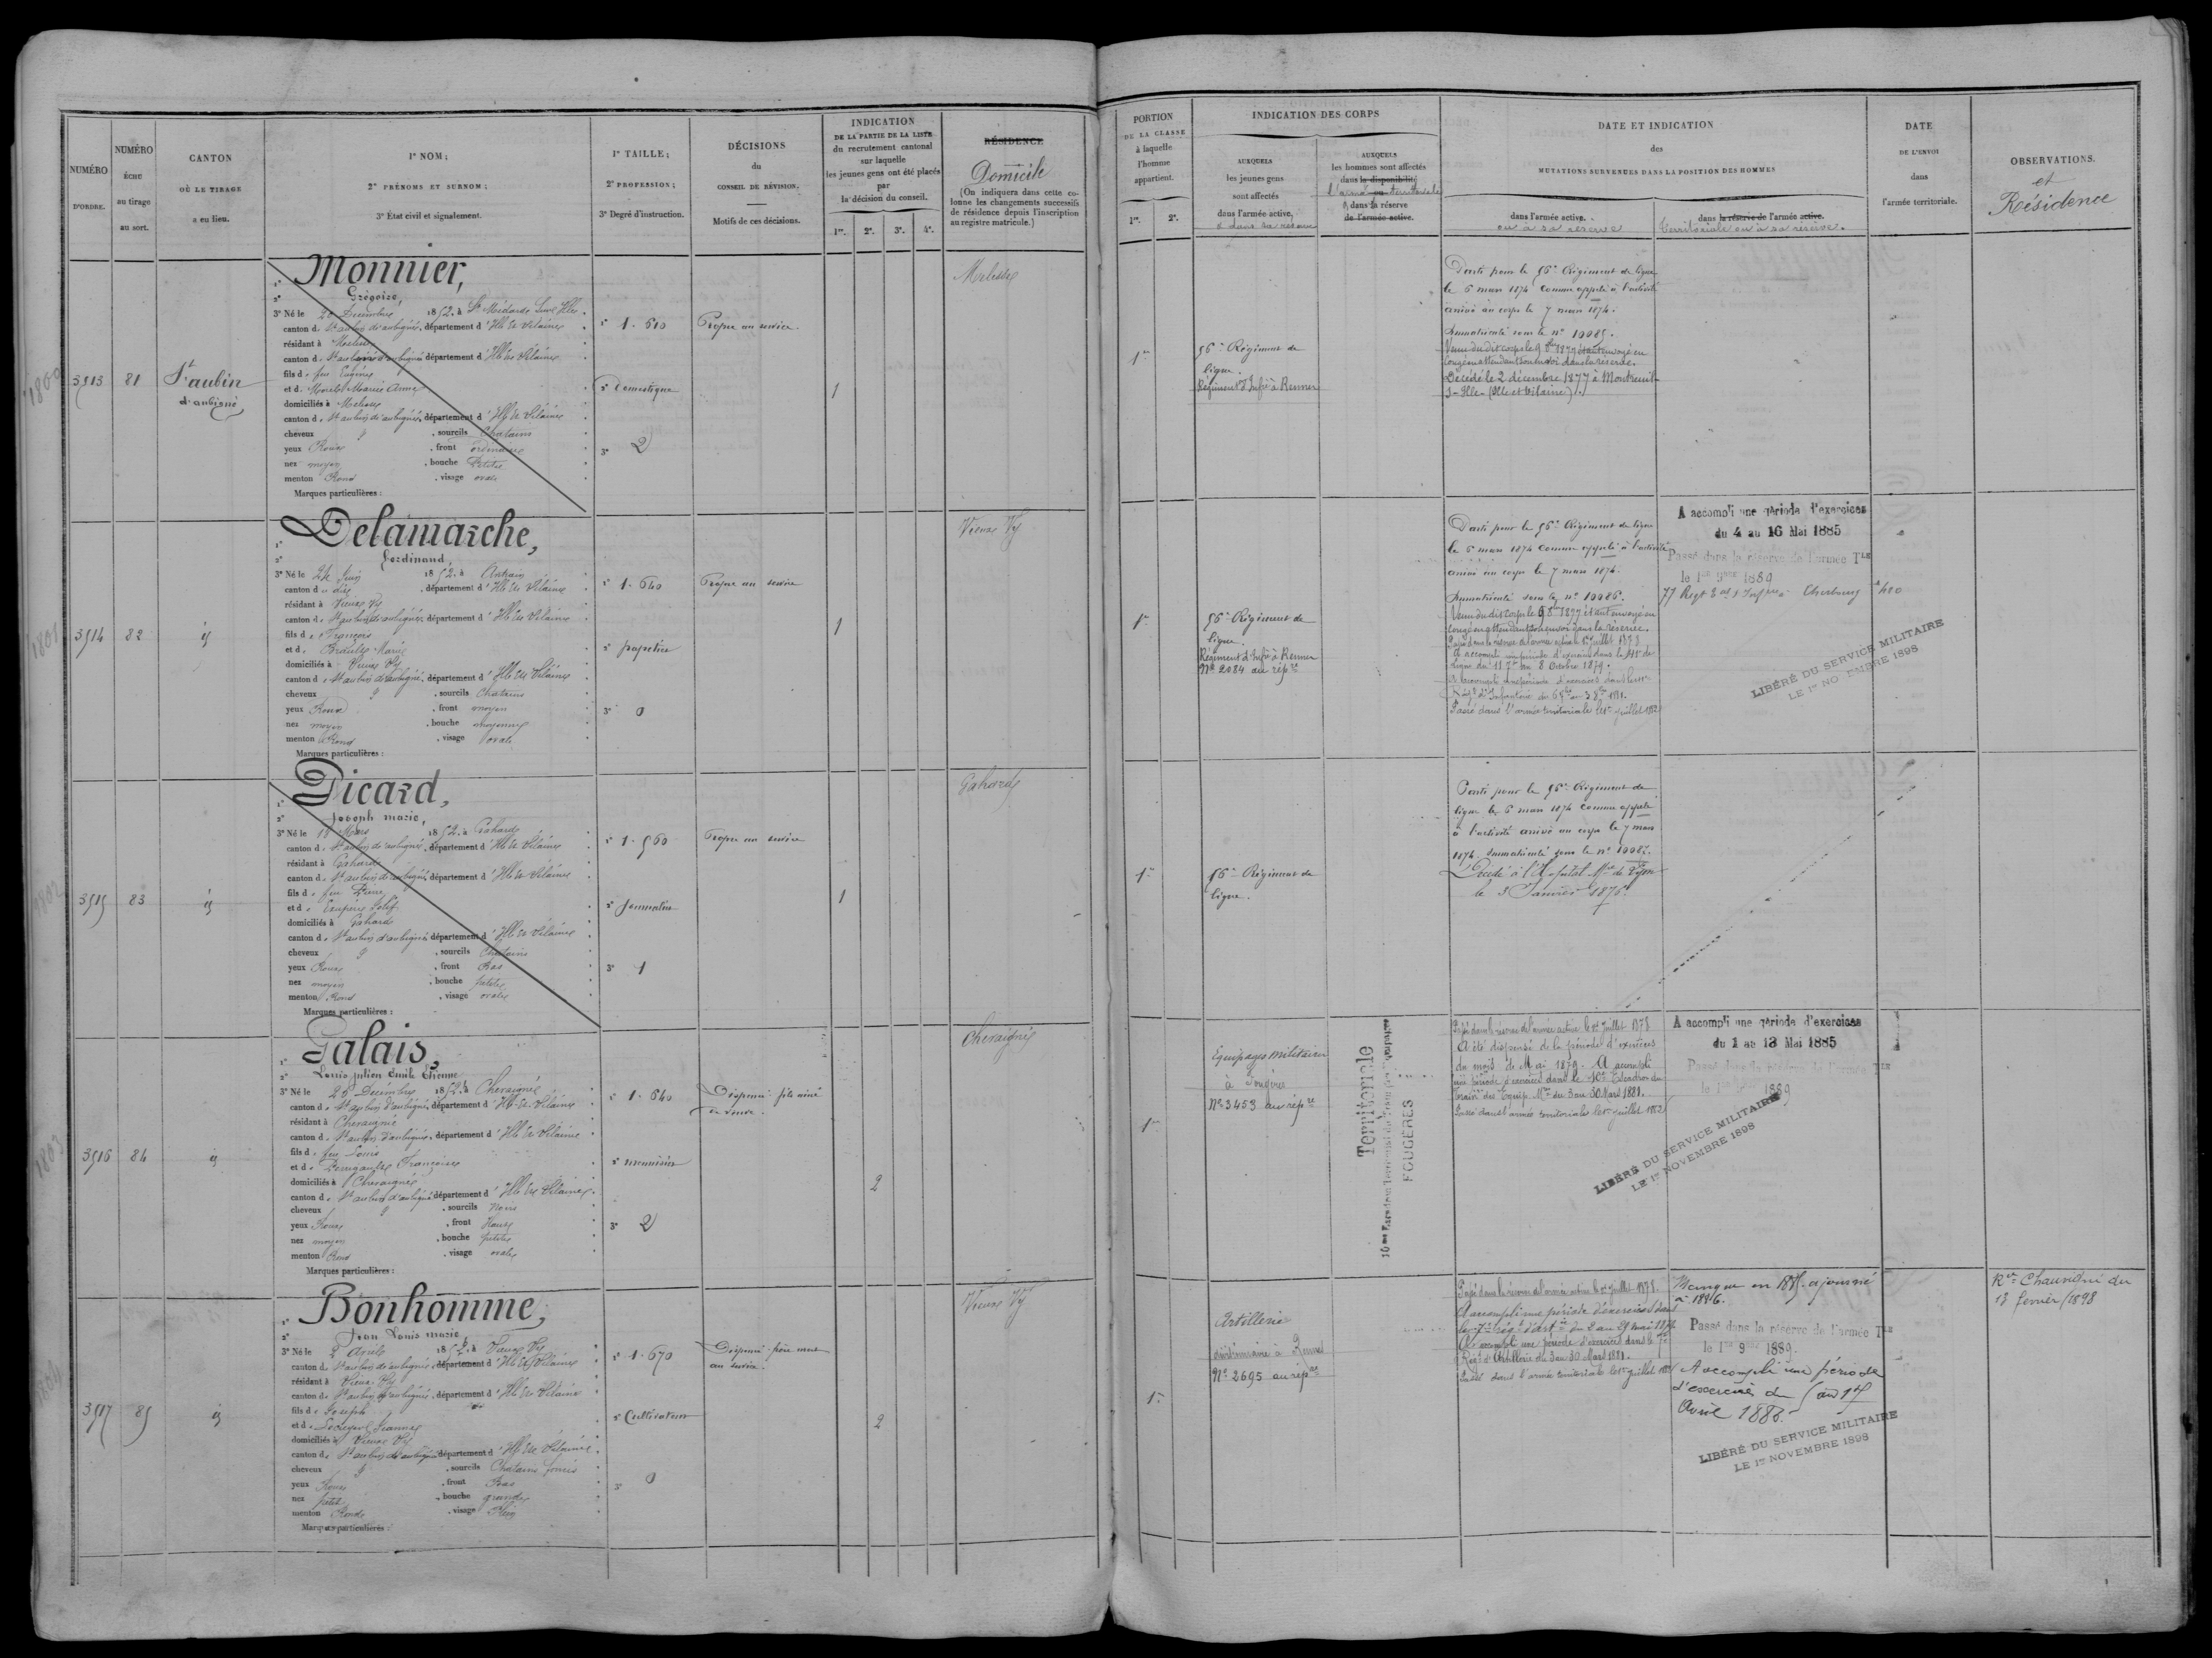 NUMÉRO
D'ORDRE.
NUMÉRO
ÉCHU
au tirage
au sort.
CANTON
OÙ LE TIRAGE
a eu lieu.
1° NOM;
2° PRÉNOMS ET SURNOM;
3° État civil et signalement.
1° TAILLE;
2° PROFESSION;
3° Degré d'instruction.
DÉCISIONS
du
CONSEIL DE RÉVISION.
Motifs de ces décisions.
INDICATION
DE LA PARTIE DE LA LISTE
du recrutement cantonal
sur laquelle
les jeunes gens ont été placés
par
la décision du conseil.
1re. 2e. 3e. 4e.
RÉSIDENCE
Domicile
(On indiquera dans cette co-
lonne les changements successifs
de résidence depuis l'inscription
au registre matricule.)
3513 81 St aubin
d'aubigné
Monnier,
2° Grégoire,
3° Né le Décembre 1852. à St Médard sur Ille
canton de St aubin d'aubigné, département d'Ille et Vilaine
résidant à Melesse
canton de St aubin d'aubigné département d'Ille et Vilaine
fils de feu
et de Marie Anne
domiciliés à Melesse
canton de St aubin d'aubigné, département d'Ille et Vilaine
cheveux , sourcils Chatains
yeux Roux , front ordinaire
nez moyen , bouche Petite
menton Rond , visage ovale
Marques particulières :
1° 1.610
2° Domestique
3° 2
Propre au service.
1
Melesse
3514 82 id
Delamarche,
2° Ferdinand,
3° Né le 24 Juin 1852. à Antrain
canton d u dit , département d'Ille et Vilaine
résidant à Vieux Vy
canton de St aubin d'aubigné, département d'Ille et Vilaine
fils de François
et de Marie
domiciliés à Vieux Vy
canton de St aubin d'aubigné, département d'Ille et Vilaine
cheveux , sourcils Chatains
yeux Roux , front moyen
nez moyen , bouche moyenne
menton Rond , visage ovale
Marques particulières :
1° 1.640
2° papetier
3° 0
Propre au service
1
Vieux Vy
3515 83 id
Picard,
2° Joseph marie,
3° Né le 18 Mars 1852. à Gahard
canton de St aubin d'aubigné, département d'Ille et Vilaine
résidant à Gahard
canton de St aubin d'aubigné département d'Ille et Vilaine
fils de feu Pierre
et de
domiciliés à Gahard
canton de St aubin d'aubigné département d'Ille et Vilaine
cheveux , sourcils Chatains
yeux Roux , front Bas
nez moyen , bouche petite
menton Rond , visage ovale
Marques particulières :
1° 1.560
2° Journalier
3° 1
Propre au service
1
Gahard
3516 84 id
Galais,
2° Louis julien Emile Etienne
3° Né le 25 Decembre 1852. à Chevaigné
canton de St aubin d'aubigné, département d'Ille et Vilaine
résidant à Chevaigné
canton de St aubin d'aubigné, département d'Ille et Vilaine
fils de feu Louis
et de Françoise
domiciliés à Chevaigné
canton de St aubin d'aubigné département d'Ille et Vilaine
cheveux , sourcils Noirs
yeux Roux , front Haut
nez moyen , bouche petite
menton Rond , visage ovale
Marques particulières :
1° 1.640
2° menuisier
3° 2
Dispensé fils ainé
de veuve.
2
Chevaigné
3517 85 id
Bonhomme,
2° Jean Louis marie
3° Né le 2 Avril 1852. à Vieux Vy
canton de St aubin d'aubigné, département d'Ille et Vilaine
résidant à Vieux Vy
canton de St aubin d'aubigné, département d'Ille et Vilaine
fils de Joseph
et de Jeanne
domiciliés à Vieux Vy
canton de St aubin d'aubigné département d'Ille et Vilaine
cheveux , sourcils Chatains
yeux Roux , front Bas
nez petit , bouche grande
menton Rond , visage Plein
Marques particulières :
1° 1.670
2° Cultivateur
3° 0
Dispensé frère mort
au service.
2
Vieux Vy
1800
1801
1802
1803
1804
PORTION
DE LA CLASSE
à laquelle
l'homme
appartient.
1re. 2e.
INDICATION DES CORPS
AUXQUELS
les jeunes gens
sont affectés
dans l'armée active.
& dans sa réserve
AUXQUELS
les hommes sont affectés
dans la disponibilité
l'armée territoriale
& dans la réserve
de l'armée active.
DATE ET INDICATION
des
MUTATIONS SURVENUES DANS LA POSITION DES HOMMES
dans l'armée active.
ou à sa réserve
dans la réserve de l'armée active.
territoriale ou à sa réserve.
DATE
DE L'ENVOI
dans
l'armée territoriale.
OBSERVATIONS.
et
Résidence
1re
Régiment de
ligne.
Régiment d'Infie à Rennes
Parti pour le Régiment de ligne
le 6 mars 1874 comme appelé à l'activité
arrivé au corps le 7 mars 1874.
Immatriculé sous le n° 10085.
Venu du dit corps le 9 8bre 1877 étant envoyé en
congé en attendant son envoi dans la réserve.
Décédé le 2 décembre 1877 à Montreuil
s-Ille (Ille et Vilaine).
1re
Régiment de
ligne
Régiment d'Infie à Rennes
N° 2084 au répre
Parti pour le Régiment de ligne
le 6 mars 1874 comme appelé à l'activité
arrivé au corps le 7 mars 1874.
Immatriculé sous le n° 10086.
Venu du dit corps le 9 8bre 1877 étant envoyé en
congé en attendant son envoi dans la réserve.
Passé dans la réserve de l'armée active le 1er juillet 1878
A accompli une période d'exercices dans le de
Ligne du 11 7bre au 8 Octobre 1879.
A accompli une période d'exercices dans le
Régt d'Infanterie du 1881.
Passé dans l'armée territoriale le 1er juillet 1882
A accompli une période d'exercices
du 4 au 16 Mai 1885
Passé dans la réserve de l'armée Tle
le 1er 9bre 1889
77 Regt Cherbourg
LIBÉRÉ DU SERVICE MILITAIRE
LE 1er NOVEMBRE 1898
1re
Régiment de
ligne.
Parti pour le Régiment de
ligne le 6 mars 1874 comme appelé
à l'activité arrivé au corps le 7 mars
1874. Immatriculé sous le n° 10087.
Décédé à l'Hopital Mre de
le 3 Janvier 1876.
1re
Equipages Militaires
à Fougères
N° 3453 au répre
Territoriale
FOUGÈRES
Passé dans la réserve de l'armée active le 1er Juillet 1878
A été dispensé de la période d'exercices
du mois de Mai 1879. A accompli
une période d'exercices dans le 10e Escadron du
Train des Equip. Mres du 3 au 30 Mars 1881.
Passé dans l'armée territoriale le 1er juillet 1882
A accompli une période d'exercices
du 1 au 13 Mai 1885
Passé dans la réserve de l'armée Tle
le 1er 1889
LIBÉRÉ DU SERVICE MILITAIRE
LE 1er NOVEMBRE 1898
1re
Artillerie
divisionnaire à Rennes
N° 2695 au répre
Passé dans la réserve de l'armée active le 1er juillet 1878.
A accompli une période d'exercices dans
le 7e régt d'artie du 2 au 29 mai 1879
A accompli une période d'exercices dans le 7e
Régt d'Artillerie du 3 au 30 Mars 1881.
Passé dans l'armée territoriale le 1er juillet 1882
Manque en 1885. ajourné
à 1886.
Passé dans la réserve de l'armée Tle
le 1er 9bre 1889.
A accompli une période
d'exercices du 5 au 17
Avril 1886.
LIBÉRÉ DU SERVICE MILITAIRE
LE 1er NOVEMBRE 1898
Rce Chauvigné du
13 fevrier 1898